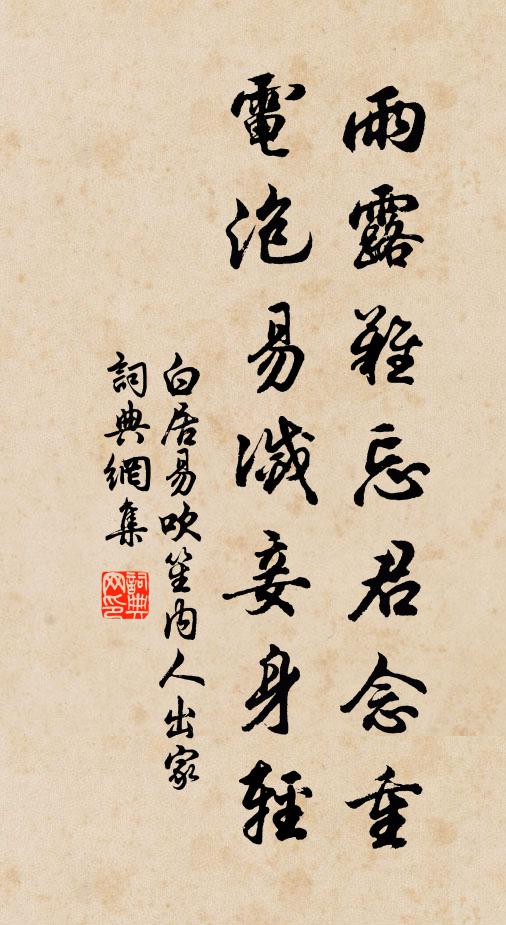 雨露難忘君念重
電泡易滅妾身輕
白居易吹笙內人出家
詞典網集
詞典
网印